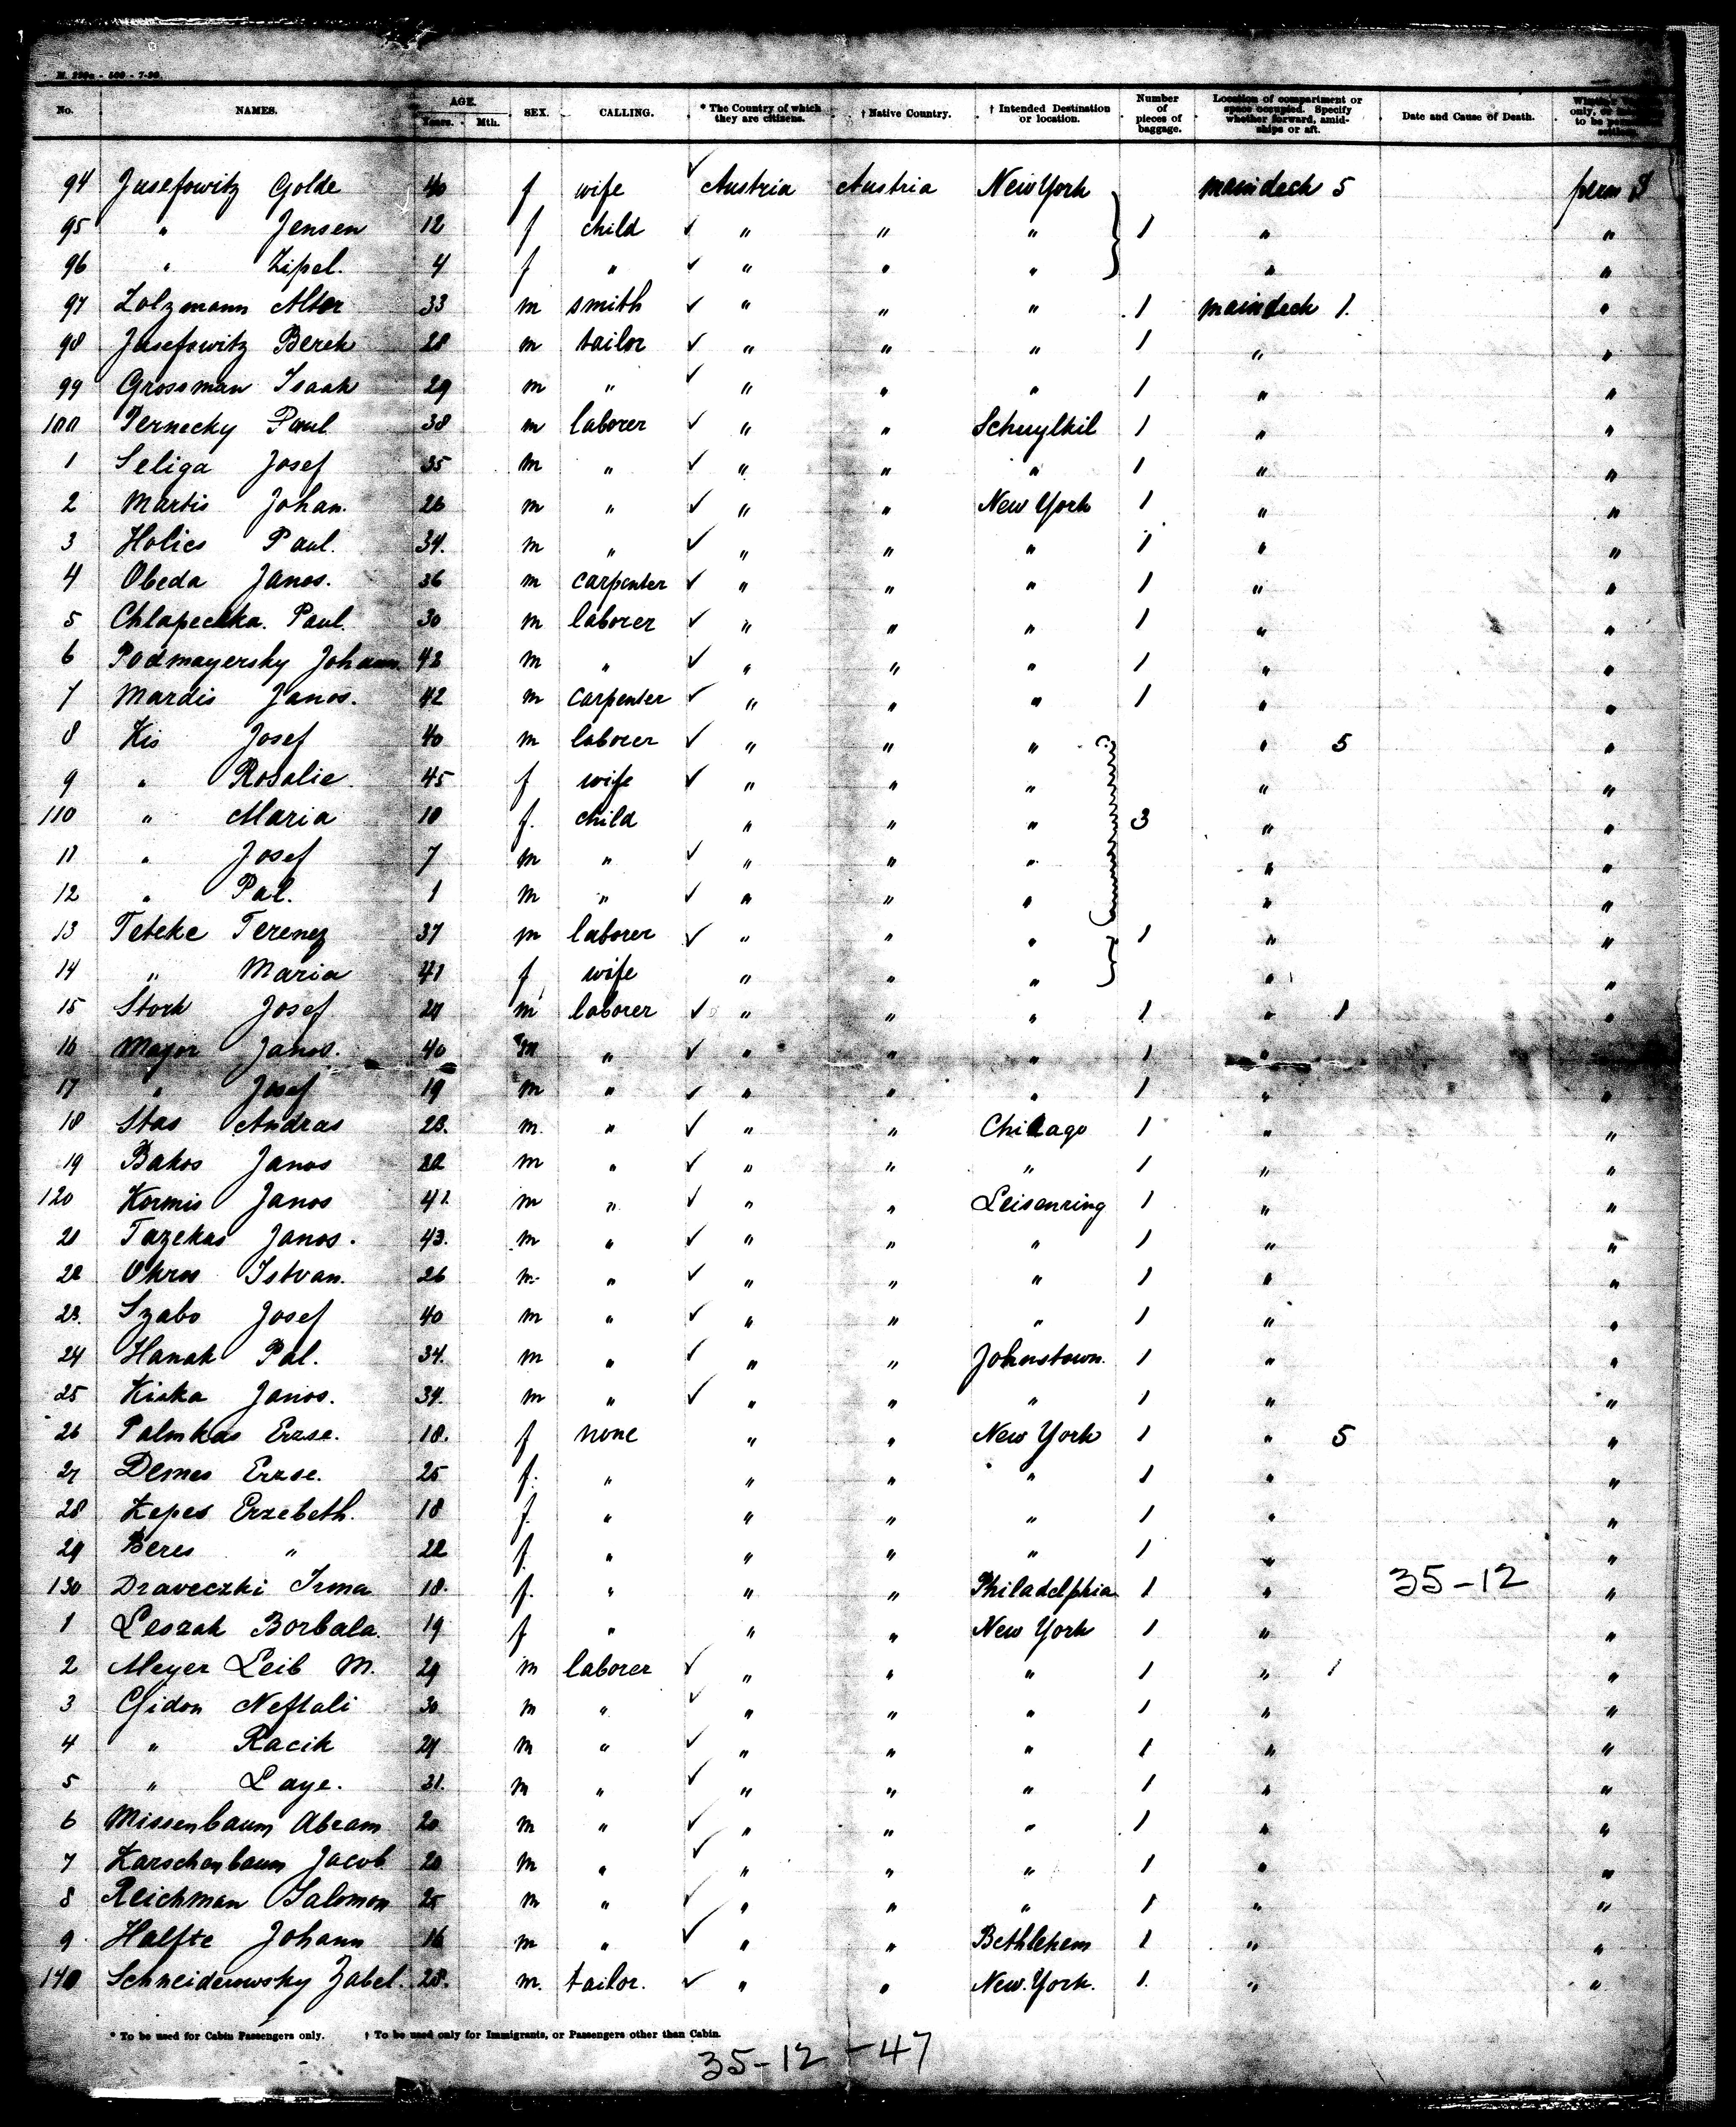 M. 220a - 500 - 7-90.
No. NAMES. AGE. Years. Mth. SEX. CALLING. * The Country of which they are citizens. † Native Country. † Intended Destination or location. Number of pieces of baggage. Location of compartment or space occupied. Specify whether forward, amid-ships or aft. Date and Cause of Death.
94 Jusefowitz Golde 40 f wife ✓ Austria Austria New York maindeck 5 perm
95 " Jensen 12 f child ✓ " " " 1 " "
96 " Zipel. 4 f " ✓ " " " " "
97 Zolzmann Alter 33 m smith ✓ " " " 1 maindeck 1. "
98 Jusefowitz Berek 28 m tailor ✓ " " " 1 " "
99 Grossman Isaak 29 m " ✓ " " " 1 " "
100 Pernecky Paul 38 m laborer ✓ " " Schuylkil 1 " "
1 Seliga Josef 35 m " ✓ " " " 1 " "
2 Martis Johan. 26 m " ✓ " " New York 1 " "
3 Holics Paul. 34. m " ✓ " " " 1 " "
4 Obeda Janos. 36 m carpenter ✓ " " " 1 " "
5 Chlapecka. Paul. 30 m laborer ✓ " " " 1 " "
6 Podmayersky Johann 48 m " ✓ " " " 1 " "
7 Mardis Janos. 42 m carpenter ✓ " " " 1 " "
8 Kis Josef 40 m laborer ✓ " " " " 5 "
9 " Rosalie. 45 f wife ✓ " " " " "
110 " Maria 10 f. child " " " 3 " "
11 " Josef 7 m " ✓ " " " " "
12 " Pal. 1 m " ✓ " " " " "
13 Teteke Terenez 37 m laborer ✓ " " " 1 " "
14 " Maria 41 f wife " " " " "
15 Stork Josef 24 m laborer ✓ " " " 1 " 1 "
16 Mayor Janos. 40 m " ✓ " " " 1 " "
17 " Josef 19 m " ✓ " " " 1 " "
18 Stas Andras 28. m " ✓ " " Chicago 1 " "
19 Bakos Janos 22 m " ✓ " " " 1 " "
120 Kormis Janos 41. m " ✓ " " Leisenring 1 " "
21 Tazekas Janos. 43. m " ✓ " " " 1 " "
22 Okros Istvan. 26 m. " ✓ " " " 1 " "
23. Szabo Josef 40 m " ✓ " " " 1 " "
24 Hanak Pal. 34. m " ✓ " " Johnstown. 1 " "
25 Kiska Janos. 34. m " ✓ " " " 1 " "
26 Palmkas Erzse. 18. f none " " New York 1 " 5 "
27 Demes Erzse. 25 f. " " " " 1 " "
28 Kepes Erzebeth. 18 f. " " " " 1 " "
29 Beres " 22 f. " " " " 1 " "
130 Draveczki Irma 18. f. " " " Philadelphia 1 " 35-12 "
1 Leszak Borbala. 19 f " " " New York 1 " "
2 Meyer Leib M. 29 m laborer ✓ " " " 1 " 1 "
3 Gidon Neftali 30 m " ✓ " " " 1 " "
4 " Racik 24 m " ✓ " " " 1 " "
5 " Laye. 31. m " ✓ " " " 1 " "
6 Missenbaum Abram 20 m " ✓ " " " 1 " "
7 Karschenbaum Jacob 20 m " ✓ " " " 1 " "
8 Reichman Salomon 25 m " ✓ " " " 1 " "
9 Halfte Johann 16 m " ✓ " " Bethlehem 1 " "
140 Schneiderowsky Zabel. 28. m. tailor. ✓ " " New York. 1. " "
* To be used for Cabin Passengers only. † To be used only for Immigrants, or Passengers other than Cabin.
35-12-47